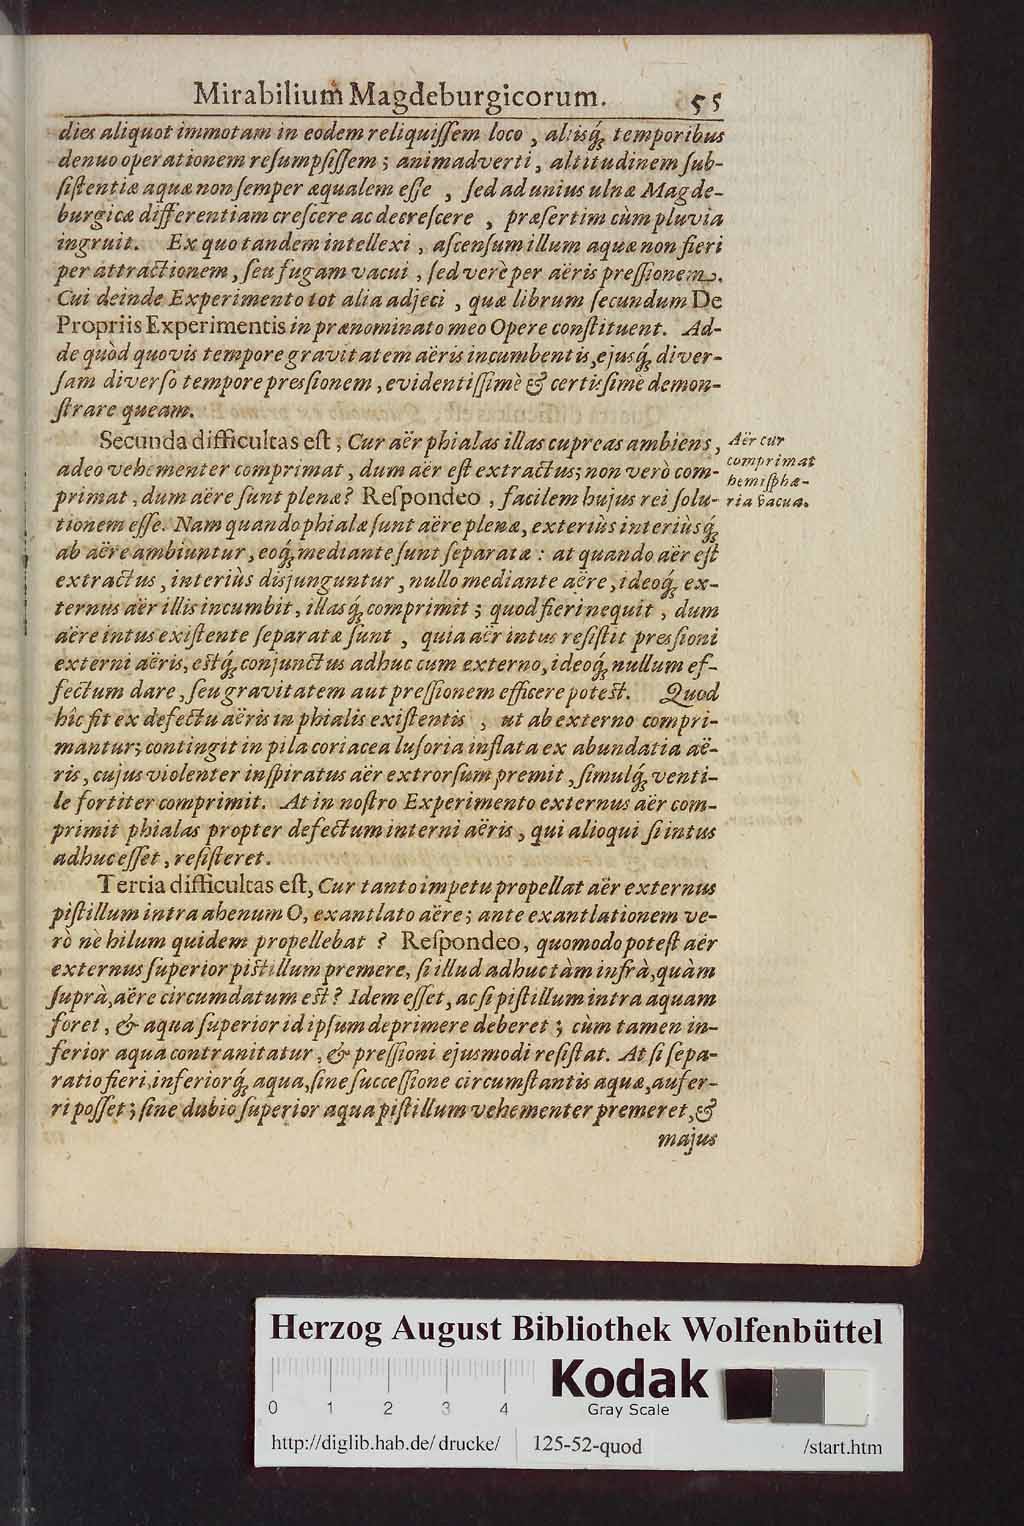 Mirabilium Magdeburgicorum. 55
dies aliquot immotam in eodem reliquiſſem loco, aliisq́; temporibus
denuo operationem reſumpſiſſem; animadverti, altitudinem ſub-
ſiſtentiæ aquæ non ſemper æqualem eſſe, ſed ad unius ulnæ Magde-
burgicæ differentiam creſcere ac decreſcere, præſertim cùm pluvia
ingruit. Ex quo tandem intellexi, aſcenſum illum aquæ non fieri
per attractionem, ſeu fugam vacui, ſed verè per aëris preſſionem.
Cui deinde Experimento tot alia adjeci, quæ librum ſecundum De
Propriis Experimentis in prænominato meo Opere conſtituent. Ad-
de quòd quovis tempore gravitatem aëris incumbentis, ejusq́; diver-
ſam diverſo tempore presſionem, evidentiſſimè & certisſimè demon-
ſtrare queam.
Secunda difficultas eſt, Cur aër phialas illas cupreas ambiens,
adeo vehementer comprimat, dum aër eſt extractus; non verò com-
primat, dum aëre ſunt plenæ? Reſpondeo, facilem hujus rei ſolu-
tionem eſſe. Nam quando phialæ ſunt aëre plenæ, exteriùs interiùsq́;
ab aëre ambiuntur, eoq́; mediante ſunt ſeparatæ: at quando aër eſt
extractus, interiùs disjunguntur, nullo mediante aëre, ideoq́; ex-
ternus aër illis incumbit, illasq́; comprimit; quod fieri nequit, dum
aëre intus exiſtente ſeparatæ ſunt, quia aër intus reſiſtit presſioni
externi aëris, eſtq́; conjunctus adhuc cum externo, ideoq́; nullum ef-
fectum dare, ſeu gravitatem aut preſſionem efficere poteſt. Quod
hîc fit ex defectu aëris in phialis exiſtentis, ut ab externo compri-
mantur; contingit in pila coriacea luſoria inflata ex abundatia aë-
ris, cujus violenter inſpiratus aër extrorſum premit, ſimulq́; venti-
le fortiter comprimit. At in noſtro Experimento externus aër com-
primit phialas propter defectum interni aëris, qui alioqui ſi intus
adhuc eſſet, reſiſteret.
Aër cur
comprimat
hemiſphæ-
ria vacua.
Tertia difficultas eſt, Cur tanto impetu propellat aër externus
piſtillum intra ahenum O, exantlato aëre; ante exantlationem ve-
rò ne hilum quidem propellebat? Reſpondeo, quomodo poteſt aër
externus ſuperior piſtillum premere, ſi illud adhuc tàm infrà, quàm
ſuprà, aëre circumdatum eſt? Idem eſſet, ac ſi piſtillum intra aquam
foret, & aqua ſuperior id ipſum deprimere deberet; cùm tamen in-
ferior aqua contranitatur, & preſſioni ejusmodi reſiſtat. At ſi ſepa-
ratio fieri, inferiorq́; aqua, ſine ſucceſſione circumſtantis aquæ, aufer-
ri poſſet; ſine dubio ſuperior aqua piſtillum vehementer premeret, &
majus
Herzog August Bibliothek Wolfenbüttel
0 1 2 3 4
Kodak
Gray Scale
http://diglib.hab.de/drucke/ 125-52-quod /start.htm